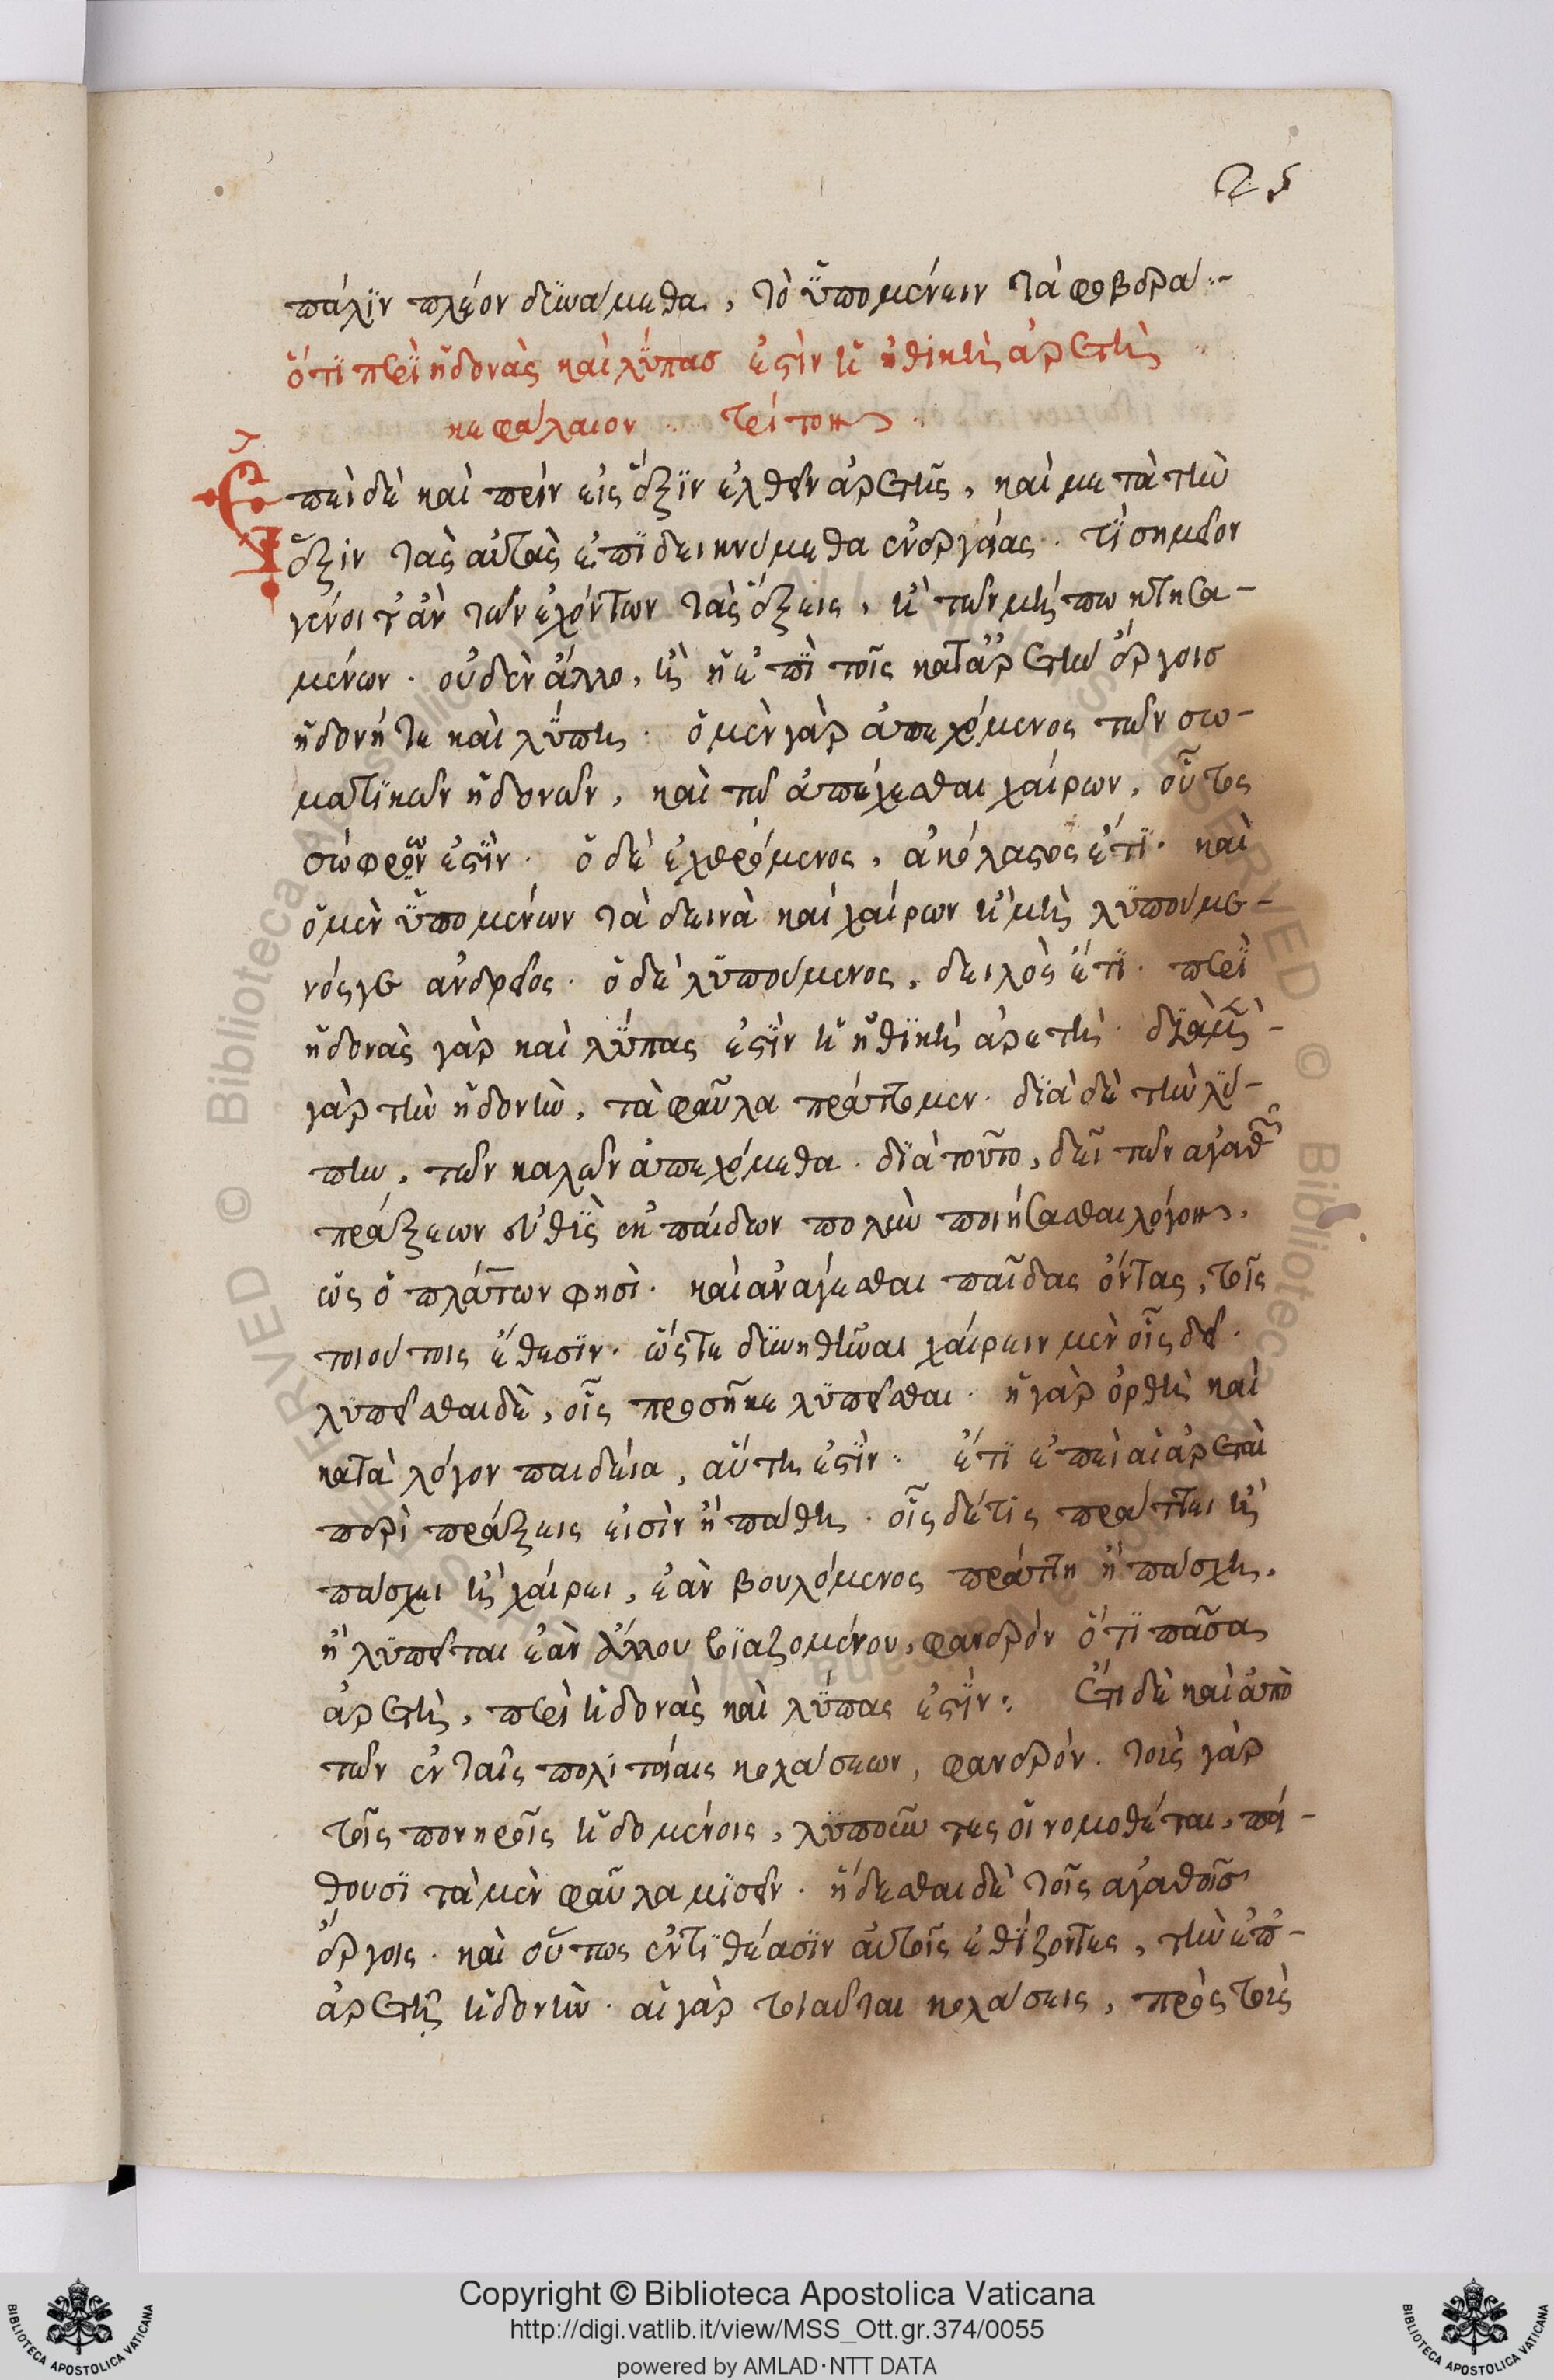 25
πάλϊν πλέον δϋνάμεθα, τὸ ὕπομένειν τὰ φοβερά:~
ὅτϊ περὶ ἡδονὰς καὶ λύπας ἐστὶν ἡ ἠθϊκὴ ἀρετὴ ..
κεφάλαιον .. τρίτον .
γ
Ἐπειδὴ καὶ πρὶν εἰς ἕξϊν ἐλθεῖν ἀρετῆς, καὶ μετὰ τὴν
ἕξιν τὰς αὐτὰς ἐπϊδεικνύμεθα ἐνεργείας. τί σημεῖον
γένοιτ' ἂν τῶν ἐχόντων τὰς ἕξεις, ἢ τῶν μήπω κτησα-
μένων. οὐδὲν ἄλλο, ἢ ἡ ἐπὶ τοῖς κατ' ἀρετὴν ἔργοις
ἡδονή τε καὶ λύπη. ὁ μὲν γὰρ ἀπεχόμενος τῶν σω-
ματϊκῶν ἡδονῶν, καὶ τῷ ἀπέχεσθαι χαίρων, οὗτος
σώφρων ἐστϊν. ὁ δὲ ἐχθρόμενος, ἀκόλαστος ἔτϊ. καὶ
ὁ μὲν ὕπομένων τὰ δεινὰ καὶ χαίρων ἢ μὴ λϋπούμε-
νός γε ἀνδρεῖος. ὁ δὲ λϋπούμενος, δειλὸς ἔτϊ. περὶ
ἡδονὰς γὰρ καὶ λύπας ἐστϊν ἡ ἠθϊκὴ ἀρετή. δϊὰ μὲν
γὰρ τὴν ἡδονὴν, τὰ φαῦλα πράττομεν. δϊὰ δὲ τὴν λύ-
πην, τῶν καλῶν ἀπεχόμεθα. δϊὰ τοῦτο, δεῖ τῶν ἀγαθῶν
πράξεων εὐθϊς ἐκ παίδων πολὺν ποιήσασθαι λόγον,
ὡς ὁ πλάτων φησὶ. καὶ ἀνάγεσθαι παῖδας ὄντας, τοῖς
τοιούτοις ἔθεσϊν. ὥστε δϋνηθῆναι χαίρειν μὲν οἷς δεῖ.
λϋπεῖσθαι δὲ, οἷς προσῆκε λϋπεῖσθαι. ἡ γὰρ ὀρθὴ καὶ
κατὰ λόγον παιδεία, αὕτη ἐστϊν .. ἔτϊ ἐπεὶ αἱ ἀρεταὶ
περὶ πράξεις εἰσὶν ἢ πάθη. οἷς δέ τις πράττει ἢ
πάσχει ἢ χαίρει, ἐὰν βουλόμενος πράττη ἢ πάσχη.
ἢ λϋπεῖται ἐὰν ἄλλου βϊαζομένου, φανερὸν ὅτϊ πᾶσα
ἀρετὴ, περὶ ἡδονὰς καὶ λύπας ἐστϊν: ἔτι δὲ καὶ ἀπὸ
τῶν ἐν ταῖς πολιτείαις κολάσεων, φανερόν. τοὺς γὰρ
τοῖς πονηροῖς ἡδομένοις, λϋποῦντες οἱ νομοθέται, πεί-
θουσϊ τὰ μὲν φαῦλα μϊσεῖν. ἥδεσθαι δὲ τοῖς ἀγαθοῖς
ἔργοις. καὶ οὕτως ἐντϊθέασϊν αὐτοῖς ἐθίζοντες, τὴν ἐπ'-
ἀρετῇ ἡδονὴν. αἱ γὰρ τοιαῦται κολάσεις, πρὸς τοὺς
Copyright © Biblioteca Apostolica Vaticana
http://digi.vatlib.it/view/MSS_Ott.gr.374/0055
powered by AMLAD·NTT DATA